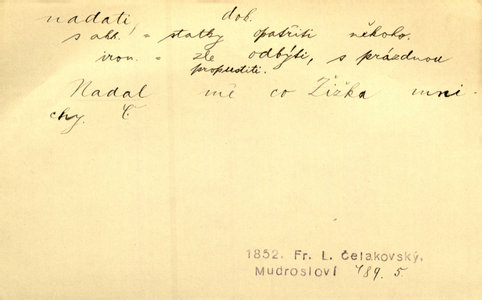 nadati, dok.
s akk. = statky opatřiti někoho,
iron. = zle odbýti, s prázdnou
propustiti.
Nadal mě co Žižka mni-
chy. Č.
1852. Fr. L. Čelakovský,
Mudrosloví 489. 5.